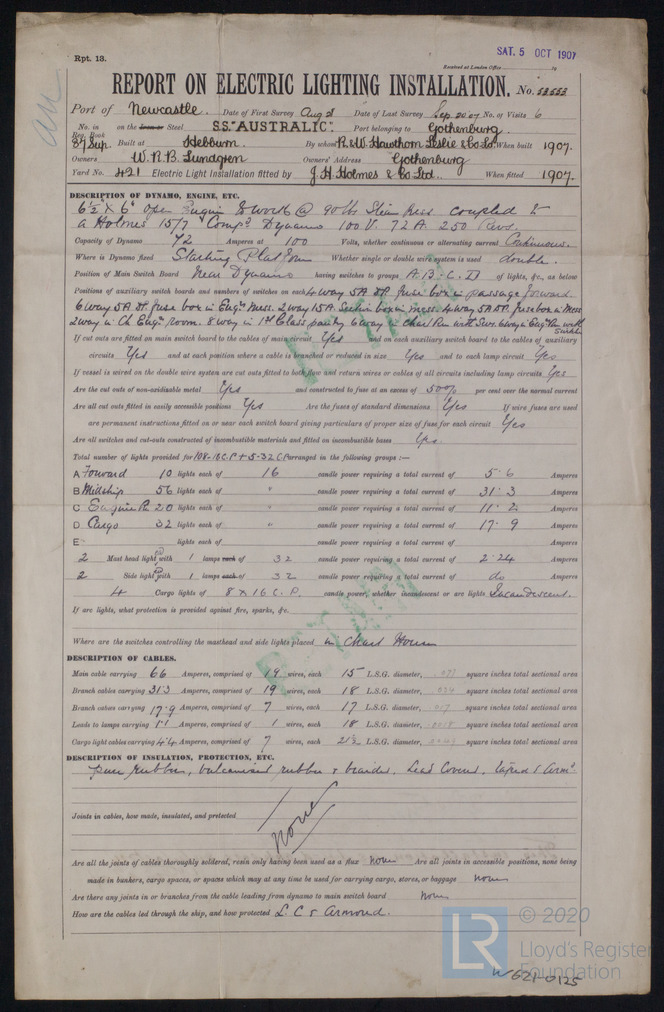 Rpt. 13.
SAT. 5 OCT 1907
Received at London Office 19
REPORT ON ELECTRIC LIGHTING INSTALLATION. No. 53553
Port of Newcastle. Date of First Survey Aug 21 Date of Last Survey Sep 20 07 No. of Visits 6
No. in Reg. Book on the Iron or Steel S.S. "AUSTRALIC". Port belonging to Gothenburg.
87 Sup. Built at Hebburn. By whom R. & W. Hawthorn Leslie & Co. Ld. When built 1907.
Owners W. R. B. Lundgren Owners' Address Gothenburg
Yard No. 421 Electric Light Installation fitted by J. H. Holmes & Co Ltd.. When fitted 1907.
DESCRIPTION OF DYNAMO, ENGINE, ETC.
6½" X 6" open Engine to work @ 90 lbs Steam Press coupled to
a Holmes 15/7 Compd Dynamo 100 V. 72 A. 250 Revs.
Capacity of Dynamo 72 Amperes at 100 Volts, whether continuous or alternating current Continuous.
Where is Dynamo fixed Starting Platform Whether single or double wire system is used double.
Position of Main Switch Board Near Dynamo having switches to groups A. B. C. D of lights, &c., as below
Positions of auxiliary switch boards and numbers of switches on each 4 way 5A DP. fuse box in passage forward
6 way 5A DP. fuse box in Engrs Mess. 2 way 15A. Section box in mess. 4 way 5A DP. fuse box in Mess
2 way in Ch Engrs Room. 8 way in 1st Class pantry 6 way in Chart Rm with Sws. 6 way in Eng Rm with Switches
If cut outs are fitted on main switch board to the cables of main circuit Yes and on each auxiliary switch board to the cables of auxiliary
circuits Yes and at each position where a cable is branched or reduced in size Yes and to each lamp circuit Yes
If vessel is wired on the double wire system are cut outs fitted to both flow and return wires or cables of all circuits including lamp circuits Yes
Are the cut outs of non-oxidizable metal Yes and constructed to fuse at an excess of 50% per cent over the normal current
Are all cut outs fitted in easily accessible positions Yes Are the fuses of standard dimensions Yes If wire fuses are used
are permanent instructions fitted on or near each switch board giving particulars of proper size of fuse for each circuit Yes
Are all switches and cut-outs constructed of incombustible materials and fitted on incombustible bases Yes.
Total number of lights provided for 108-16 C.P + 5-32 C.P arranged in the following groups :—
A Forward 10 lights each of 16 candle power requiring a total current of 5.6 Amperes
B Midship 56 lights each of " candle power requiring a total current of 31.3 Amperes
C Engine Rm 20 lights each of " candle power requiring a total current of 11.2 Amperes
D Cargo 32 lights each of " candle power requiring a total current of 17.9 Amperes
E lights each of candle power requiring a total current of Amperes
2 Mast head light with 1 lamps each of 32 candle power requiring a total current of 2.24 Amperes
2 Side light with 1 lamps each of 32 candle power requiring a total current of do Amperes
4 Cargo lights of 8 X 16 C. P. candle power, whether incandescent or arc lights Incandescent.
If arc lights, what protection is provided against fire, sparks, &c.
Where are the switches controlling the masthead and side lights placed in Chart House
DESCRIPTION OF CABLES.
Main cable carrying 66 Amperes, comprised of 19 wires, each 15 L.S.G. diameter, .077 square inches total sectional area
Branch cables carrying 31.3 Amperes, comprised of 19 wires, each 18 L.S.G. diameter, .034 square inches total sectional area
Branch cables carrying 17.9 Amperes, comprised of 7 wires, each 17 L.S.G. diameter, .017 square inches total sectional area
Leads to lamps carrying 1.1 Amperes, comprised of 1 wires, each 18 L.S.G. diameter, .0018 square inches total sectional area
Cargo light cables carrying 4.4 Amperes, comprised of 7 wires, each 21½ L.S.G. diameter, square inches total sectional area
DESCRIPTION OF INSULATION, PROTECTION, ETC.
pure rubber, vulcanised rubber & braided. Lead Covered, taped & Armd
Joints in cables, how made, insulated, and protected
None
Are all the joints of cables thoroughly soldered, resin only having been used as a flux none Are all joints in accessible positions, none being
made in bunkers, cargo spaces, or spaces which may at any time be used for carrying cargo, stores, or baggage none
Are there any joints in or branches from the cable leading from dynamo to main switch board none
How are the cables led through the ship, and how protected L. C & Armoured.
LR © 2020
Lloyd's Register
Foundation
W621-0125